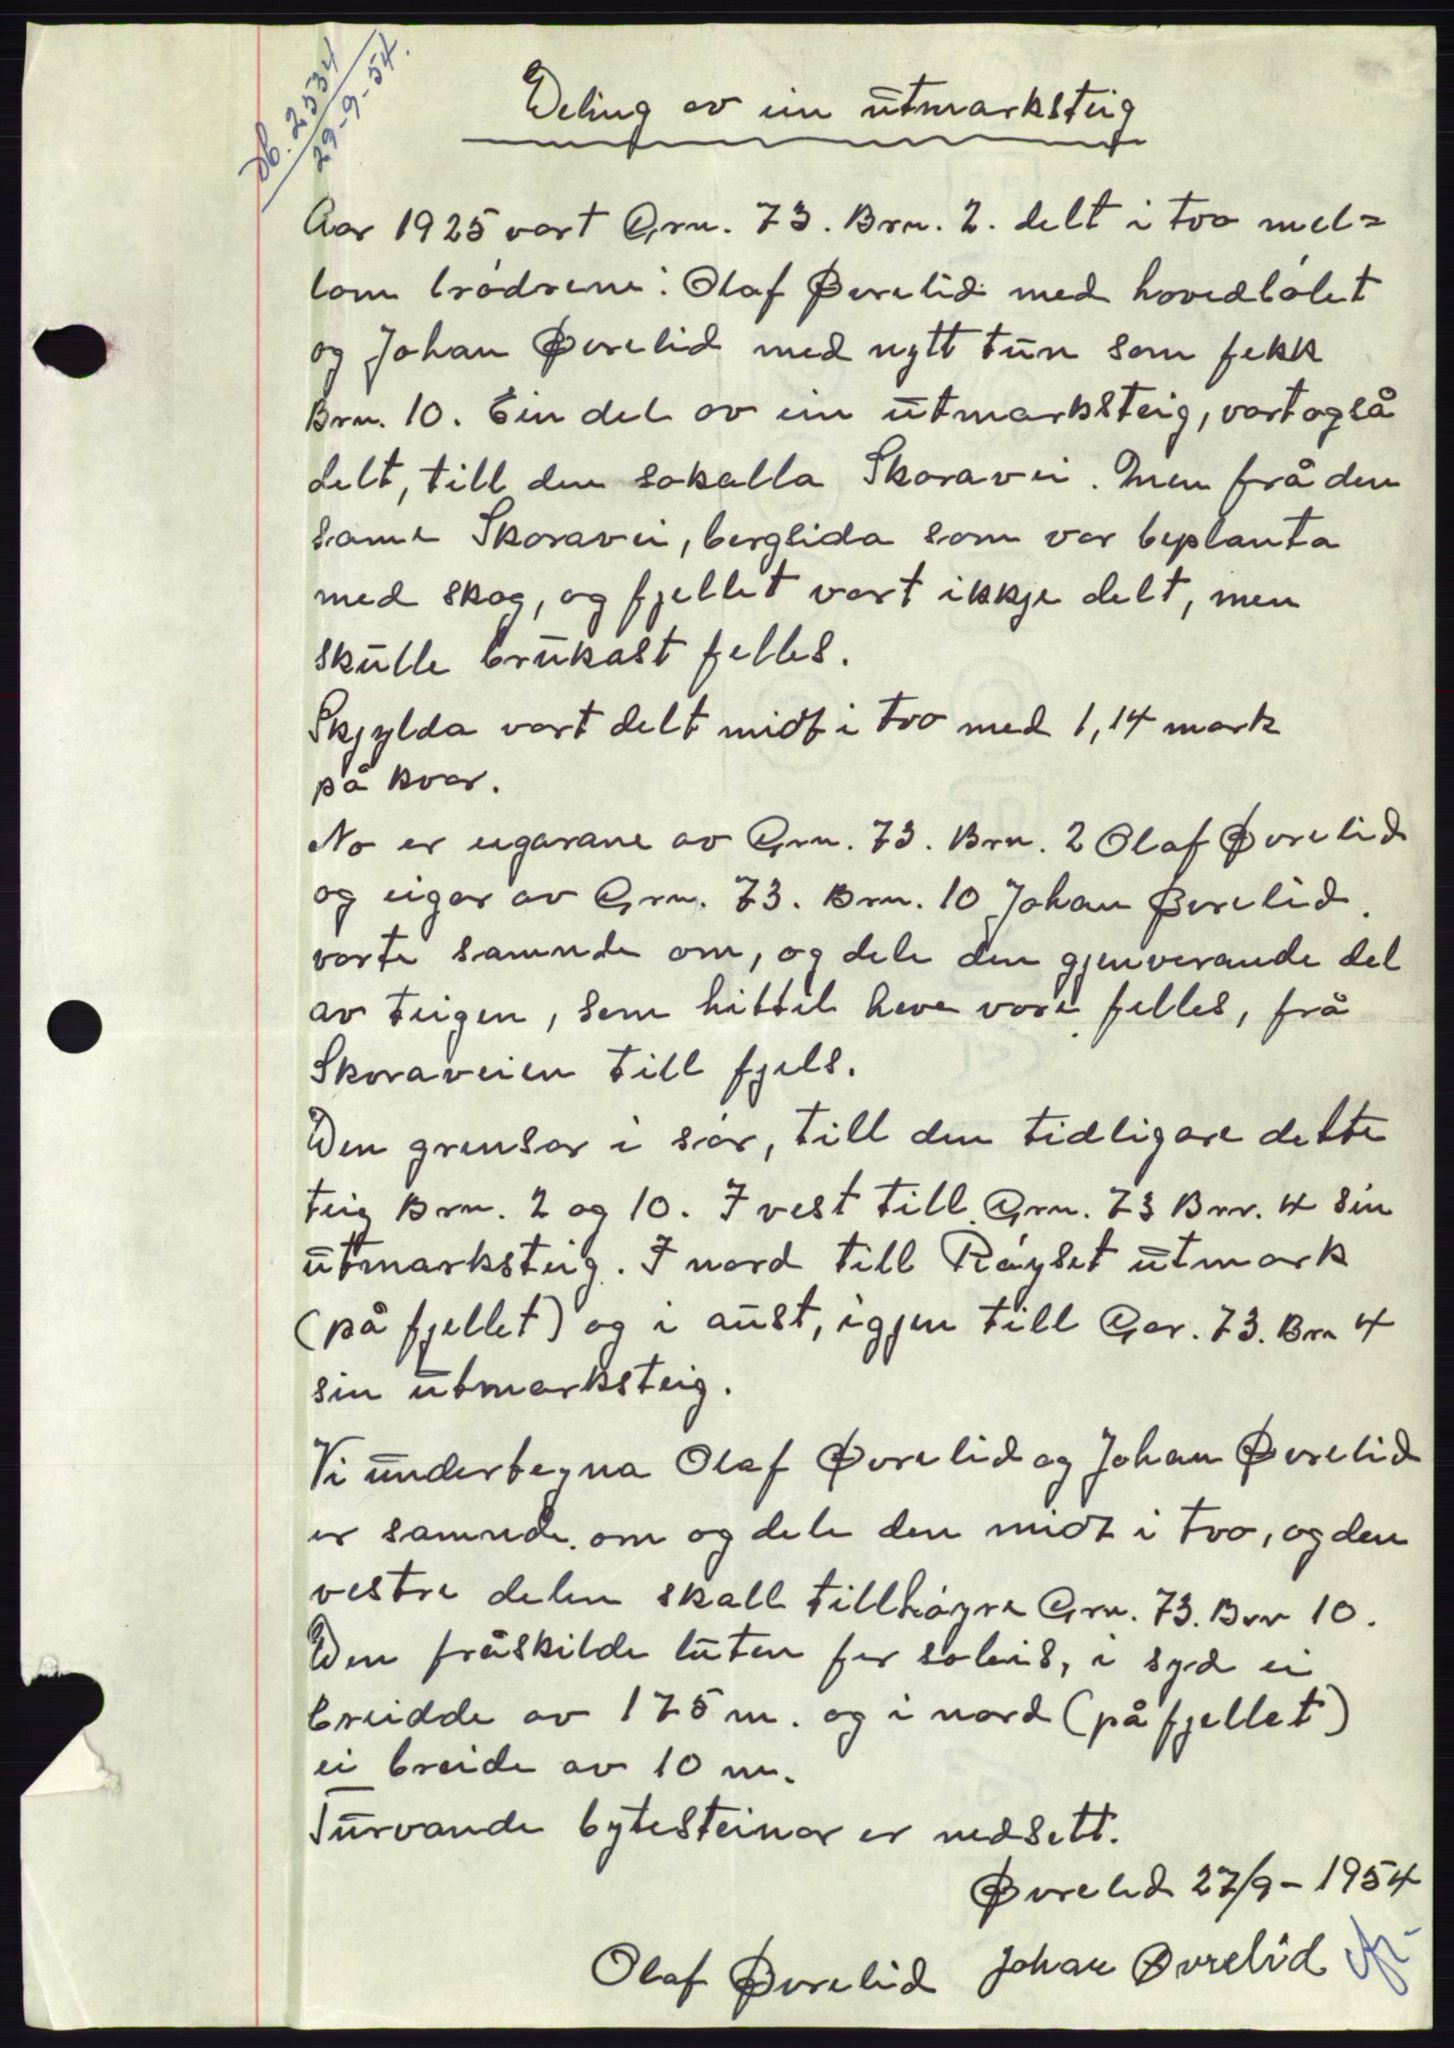 Db. 2534
29-9-54.
Deling av ein utmarksteig
Aar 1925 vart Grn. 73. Brn. 2. delt i tvo mel=
lom brødrene: Olaf Øvrelid med hovedbølet
og Johan Øvrelid med nytt tun som fekk
Brn. 10. Ein del av ein utmarksteig, vart også
delt, till den sokalla Skoravei. Men frå den
same Skoravei, bergsida som var beplanta
med skog, og fjellet vart ikkje delt, men
skulle brukast felles.
Skjylda vart delt midt i tvo med 1,14 mark
på kvar.
No er eigarane av Grn. 73. Brn. 2 Olaf Øvrelid
og eigar av Grn. 73. Brn. 10 Johan Øvrelid.
vorte samnde om, og dele den gjenverande del
av teigen, som hittil heve vore felles, frå
Skoraveien till fjels.
Den grensar i sør, till den tidligare delte
teig Brn. 2 og 10. I vest till Grn. 73 Brn. 4 sin
utmarksteig. I nord till Røyset utmark
(på fjellet) og i aust, igjen till Gar. 73. Brn 4
sin utmarksteig.
Vi underteyna Olaf Øvrelid og Johan Øvrelid
er samnde om og dele den midt i tvo, og den
vestre delen skall tillhøyre Grn. 73. Brn 10.
Den fråskilde luten fer soleis, i syd ei
breidde av 175 m. og i nord (på fjellet)
ei breide av 10 m.
Turvande bytesteinar er nedsett.
Øvrelid 27/9-1954
Olaf Øvrelid Johan Øvrelid